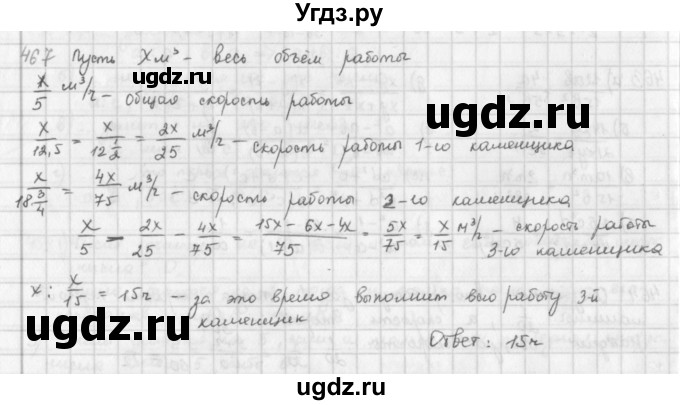 Угдз.ру
467 Пусть X м³ – весь объём работы
x/5 м³/г – Общая скорость работы
x/12,5 = x/12 1/2 = 2x/25 м³/г – скорость работы 1-го каменщика
x/18 3/4 = 4x/75 м³/г – скорость работы 2-го каменщика
x/5 – 2x/25 – 4x/75 = 15x – 6x – 4x/75 = 5x/75 = x/15 м³/г – скорость работы
3-го каменщика
x : x/15 = 15г – за это время выполнит всю работу 3-й
каменщик
Ответ: 15г
ugdz.ru
ugdz.ru
ugdz.ru
ugdz.ru
ugdz.ru
ugdz.ru